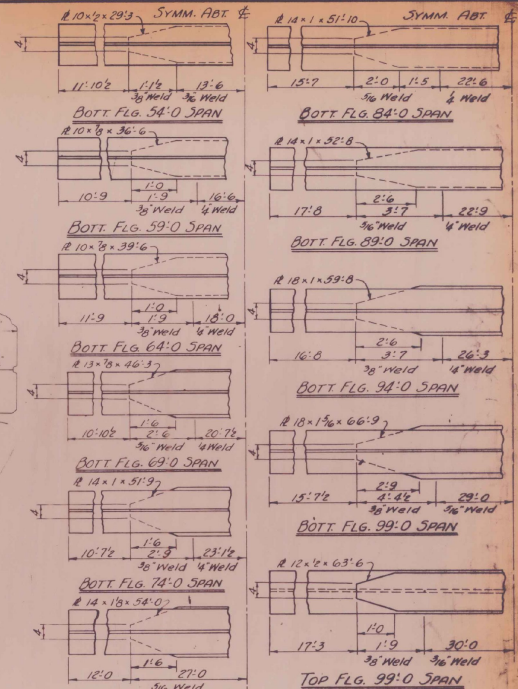 SYMM. ABT. ℄
℄ 10×½×29'-3
4
11'-10½ 1'-1½ 13'-6
3/8" Weld 3/16 Weld
BOTT. FLG. 54'-0 SPAN
℄ 10×7/8×36'-6
4
1'-0
10'-9 1'-9 16'-6
3/8" Weld ¼" Weld
BOTT. FLG. 59'-0 SPAN
℄ 10×7/8×39'-6
4
1'-0
11'-9 1'-9 18'-0
3/8" Weld ¼" Weld
BOTT. FLG. 64'-0 SPAN
℄ 13×7/8×46'-3
4
1'-6
10'-10½ 2'-6 20'-7½
5/16" Weld ¼ Weld
BOTT. FLG. 69'-0 SPAN
℄ 14×1×51'-9
4
1'-6
10'-7½ 2'-9 23'-1½
3/8" Weld ¼" Weld
BOTT. FLG. 74'-0 SPAN
℄ 14×1/8×54'-0
4
1'-6
12'-0 27'-0
5/16 Weld
SYMM. ABT ℄
℄ 14×1×51'-10
4
15'-7 2'-0 1'-5 22'-6
5/16 Weld ¼ Weld
BOTT. FLG. 84'-0 SPAN
℄ 14×1×52'-8
4
2'-6
17'-8 3'-7 22'-9
5/16" Weld ¼" Weld
BOTT. FLG. 89'-0 SPAN
℄ 18×1×59'-8
4
2'-6
16'-8 3'-7 26'-3
3/8" Weld ¼" Weld
BOTT. FLG. 94'-0 SPAN
℄ 18×1 5/16×66'-9
4
2'-9
15'-7½ 4'-4½ 29'-0
3/8" Weld 5/16" Weld
BOTT. FLG. 99'-0 SPAN
℄ 12×½×63'-6
4
1'-0
17'-3 1'-9 30'-0
3/8" Weld 3/16" Weld
TOP FLG. 99'-0 SPAN